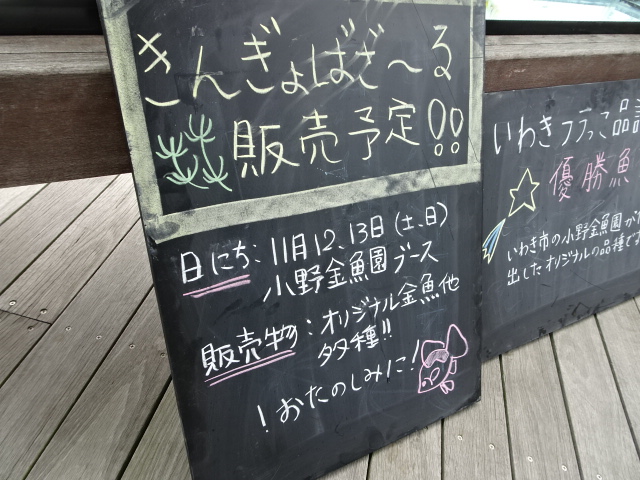 きんぎょばざ〜る
販売予定!!
日にち:11月12、13日(土、日)
小野金魚園ブース
販売物:オリジナル金魚他
多種!!
!おたのしみに!
いわきフラっこ品評
優勝魚
いわき市の小野金魚園が
出したオリジナルの品種で